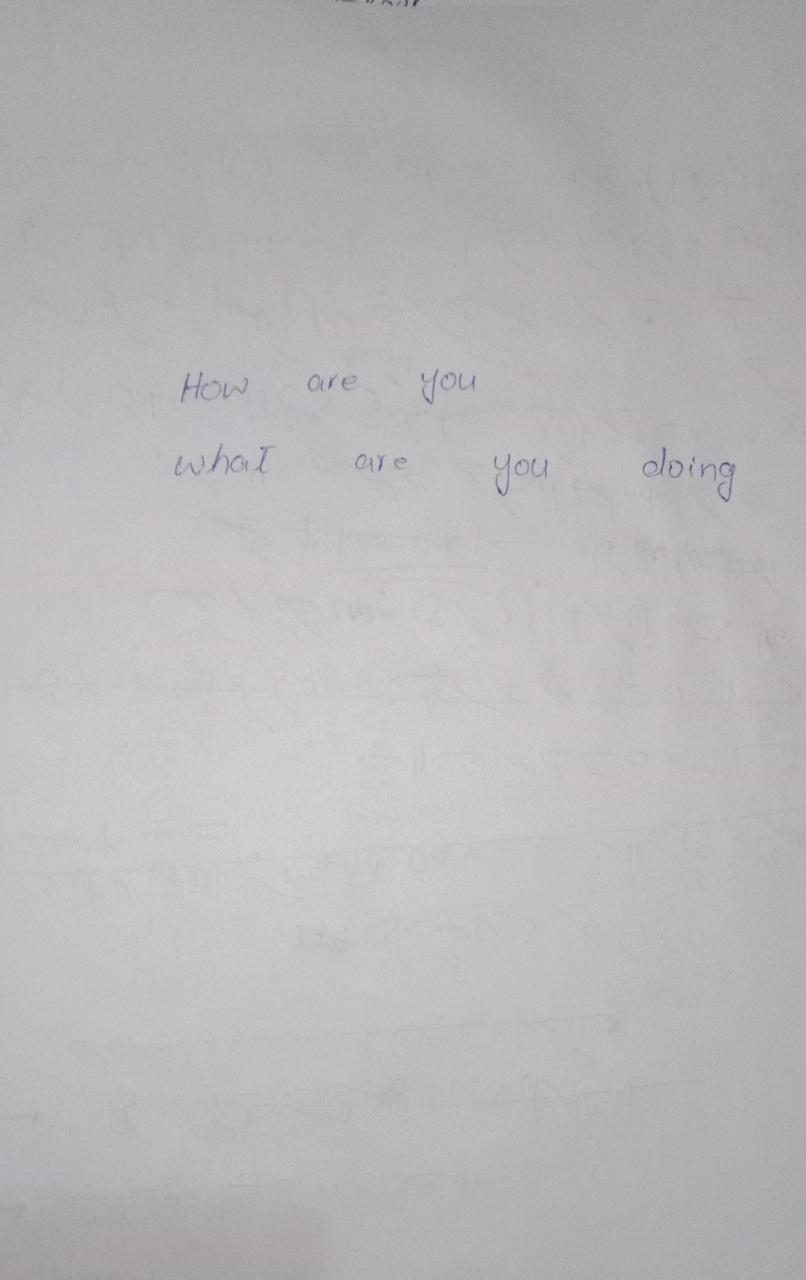 How are you
what are you doing